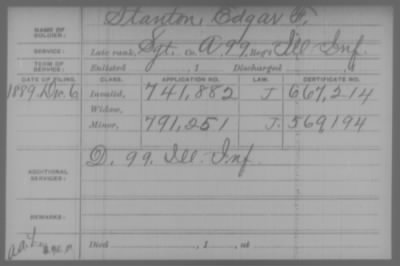 NAME OF SOLDIER: Stanton, Edgar F.
SERVICE: Late rank, Sgt. Co. A, 99, Reg't Ill. Inf.
TERM OF SERVICE: Enlisted , 1 Discharged , 1
DATE OF FILING. CLASS. APPLICATION NO. LAW. CERTIFICATE NO.
1889 Dec. 6 Invalid, 741,882 J 667,214
Widow,
Minor, 791,251 J. 569194
ADDITIONAL SERVICES: D. 99. Ill. Inf.
REMARKS:
Died , 1 , at